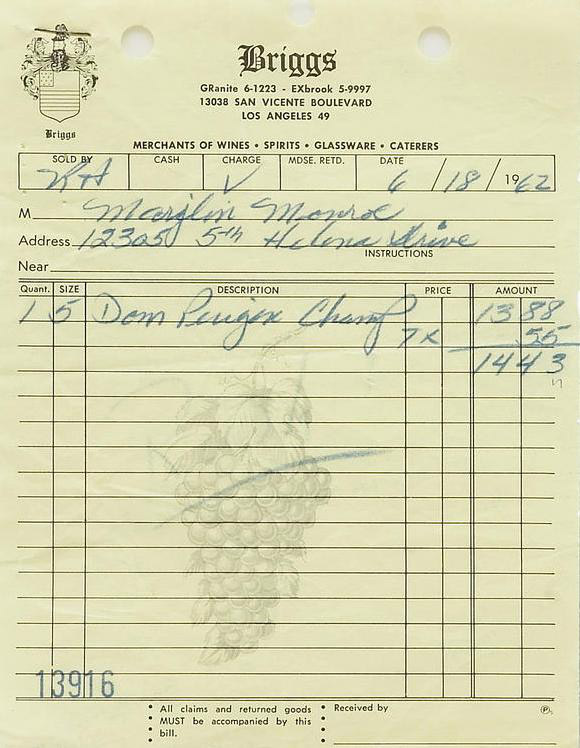 Briggs
Briggs
GRanite 6-1223 - EXbrook 5-9997
13038 SAN VICENTE BOULEVARD
LOS ANGELES 49
MERCHANTS OF WINES • SPIRITS • GLASSWARE • CATERERS
SOLD BY CASH CHARGE MDSE. RETD. DATE
RA √ 6 / 18 / 1962
M Marylin Monroe
Address 12305 5th Helena Drive
INSTRUCTIONS
Near
Quant. SIZE DESCRIPTION PRICE AMOUNT
1 5 Dom Perigon Champ 13 88
Tx 55
14 43
13916
All claims and returned goods MUST be accompanied by this bill.
Received by